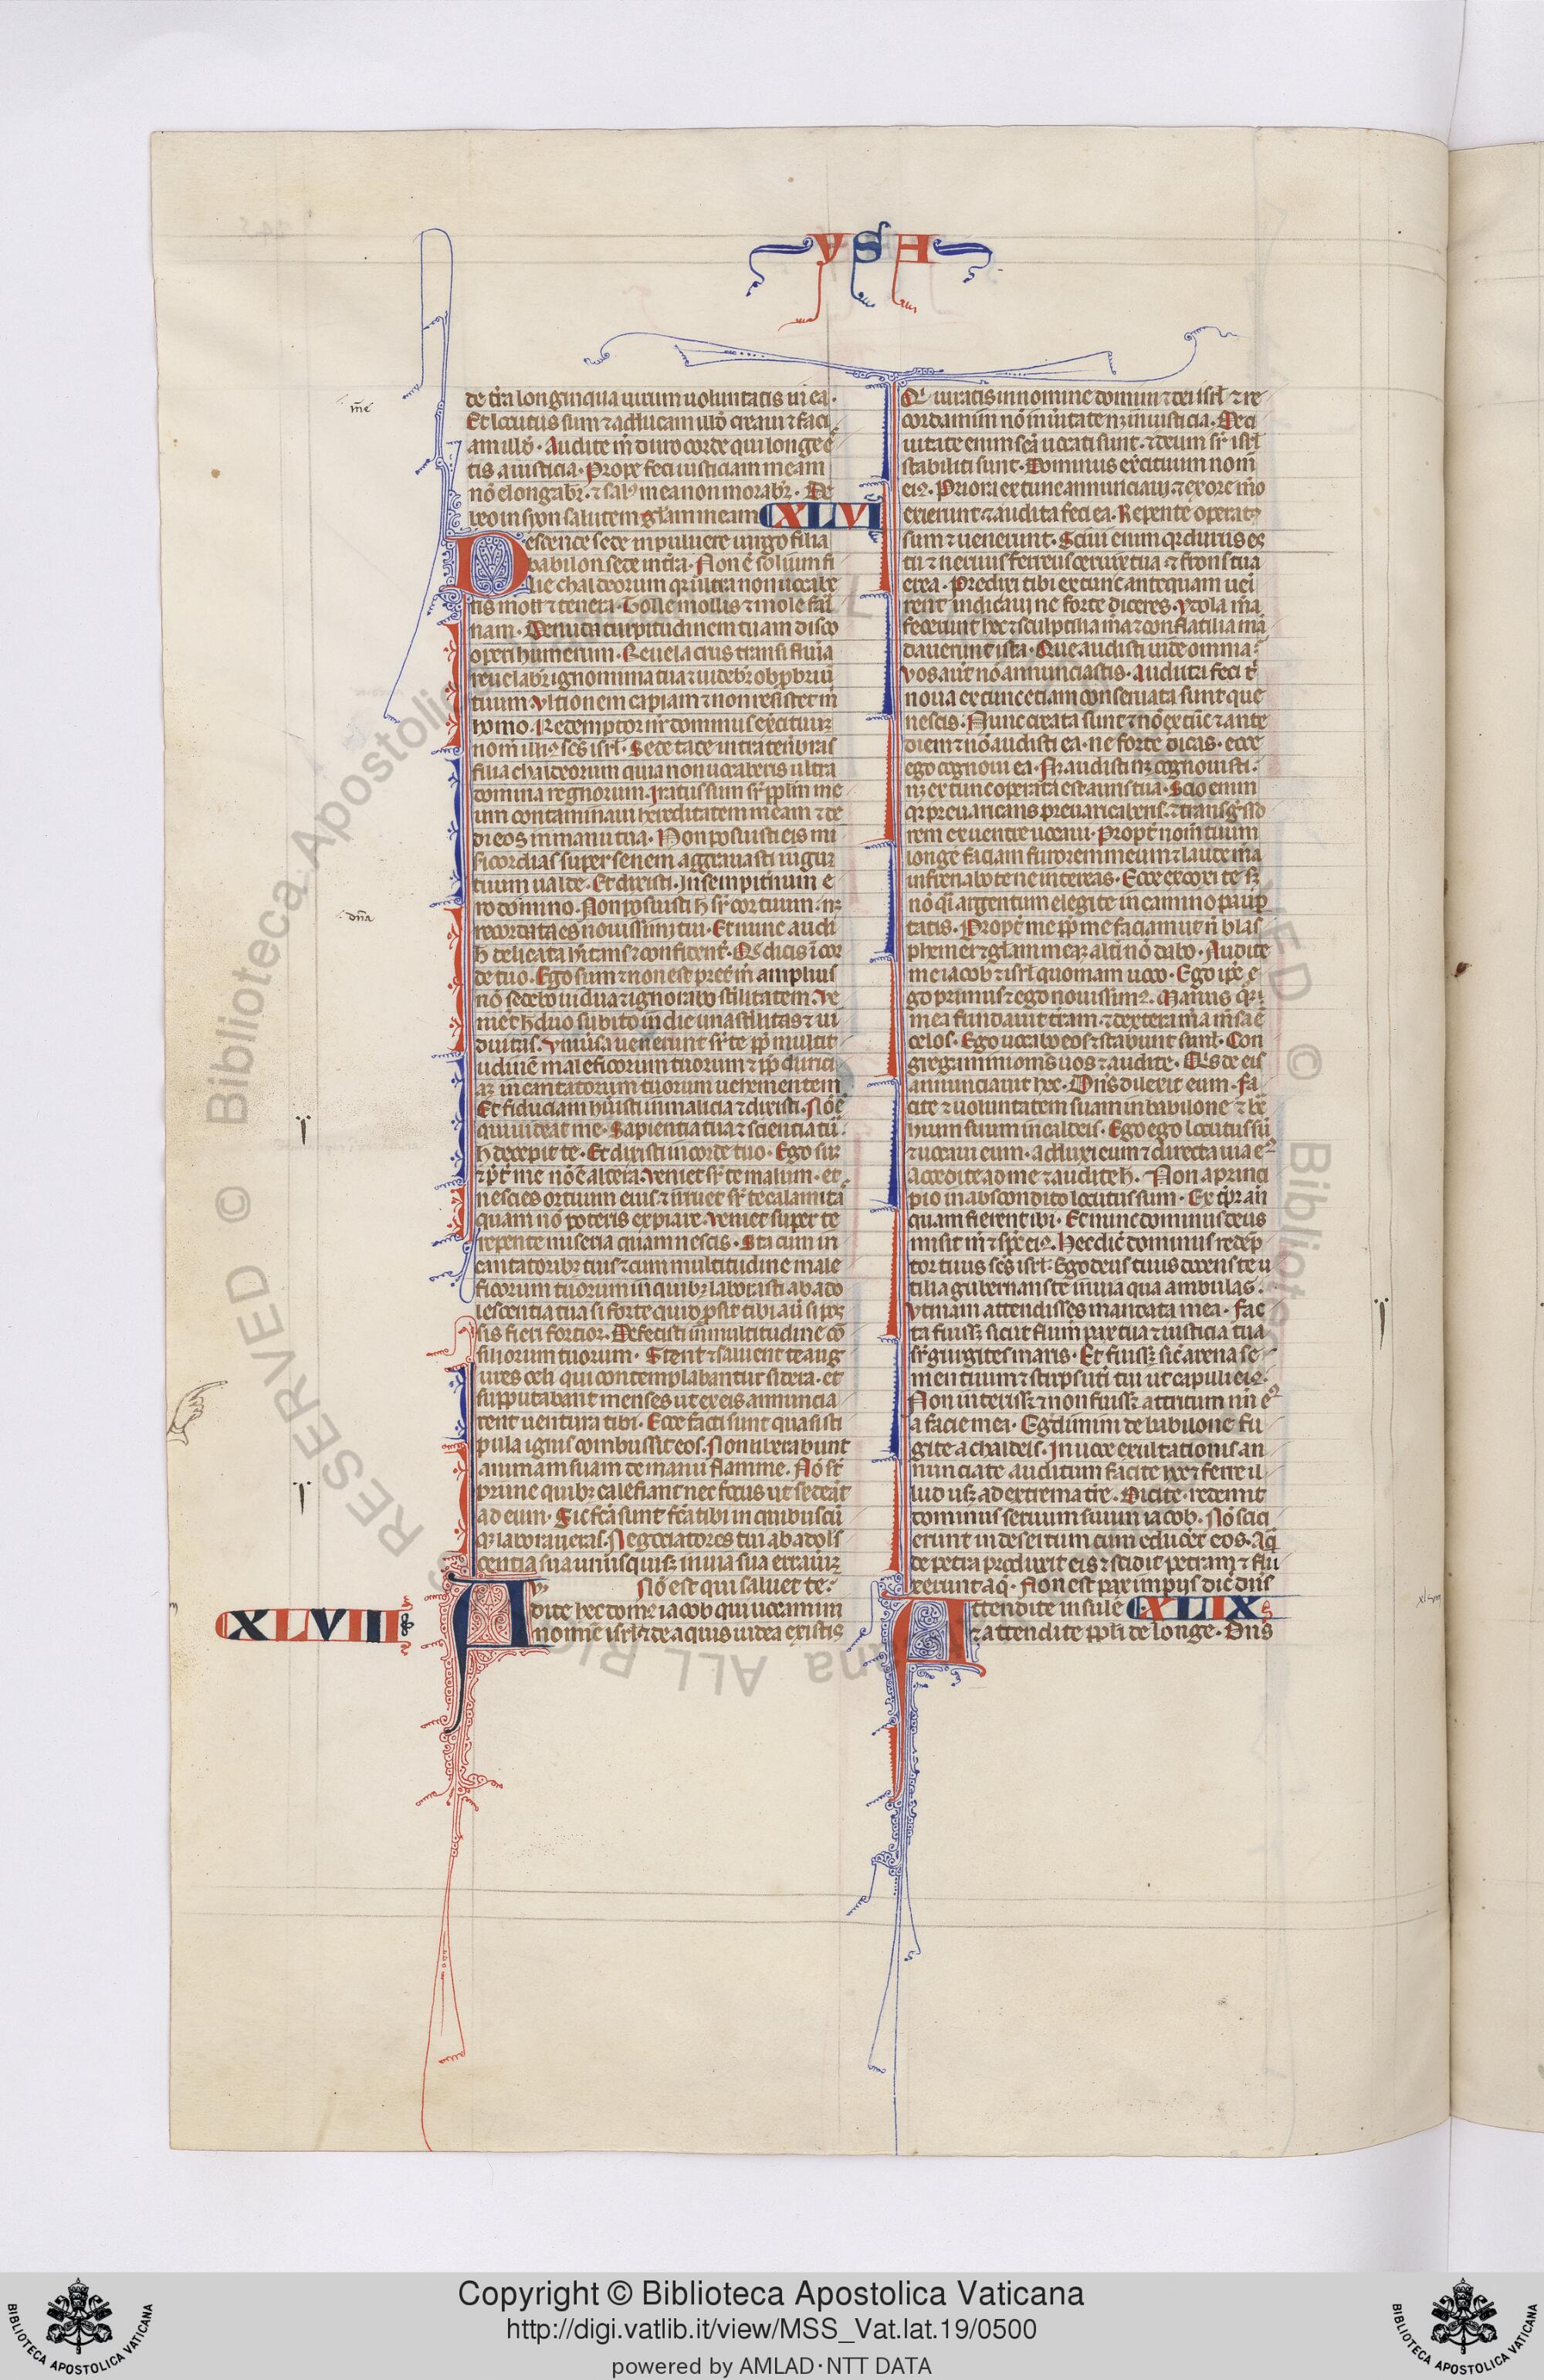 YSA
de tr̄a longinqua uirum uoluntatis m̄ ea ·
Et locutus sum ⁊ adducam illō creaui ⁊ faci
am illō · Audite m̄ duro corde qui longe ē
tis a iusticia · Prope feci iusticiam meam
nō elongabr̄ · ⁊ salꝰ mea non morabr̄ · Da
bo in syon salutem gl̄am meam
XLVI
Descende sede in puluere uirgo filia
babilon sede in tr̄a · Non ē solium fi
lie chaldeorum qꝛ ultra non uocabe
ris moll' ⁊ tenera · Tolle mollis ⁊ mole fari
nam · Denuda turpitudinem tuam disco
operi humerum · Reuela crus transi fluuia
reuelabr̄ ignominia tua ⁊ uidebr̄ obprobriū
tuum Vltionem capiam ⁊ non resistet m̄
homo · Redemptor nr̄ dominus exercituum
nom̄ illiꝰ scs̄ isrl̄ · Sede tace intra tenebras
filia chaldeorum quia non uocaberis ultra
domina regnorum · Iratus sum sr̄ ppl̄m me
um contaminaui hereditatem meam ⁊ de
di eos in manu tua · Non posuisti eis mi
sericordias super senem aggrauasti iugum
tuum ualde · Et dixisti · In sempiternum e
ro domina · Non posuisti h̄ sr̄ cor tuum · nꝫ
recordata es nouissimi tui · Et nunc audi
h̄ delicata hītans ⁊ confident̄ · Que dicis ī cor
de tuo · Ego sum ⁊ non est preter m̄ amplius
nō sedebo uidua ⁊ ignorabo sterilitatem · Ve
nient h̄ duo subito in die una sterilitas ⁊ ui
duitas · Vniuersa uenerunt sr̄ te pp̄ multit
udinē maleficorum tuorum ⁊ pp̄ durici
aꝫ incantatorum tuorum uehementem
Et fiduciam habuisti in malicia ⁊ dixisti · Nō ē
qui uideat me · Sapientia tua ⁊ scientia tua
h̄ decepit te · Et dixisti in corde tuo · Ego suꝫ
⁊ pt̄ me nō ē altera · Veniet sr̄ te malum · et
nescies ortum eius ⁊ irruet sr̄ te calamitas
quam nō poteris expiare · Veniet super te
repente miseria quam nescis · Sta cum in
cantatoribꝫ tuis ⁊ cum multitudine male
ficorum tuorum in quibꝫ laborasti ab ado
lescentia tua si forte quid prosit tibi aū si pos
sis fieri fortior · Defecisti in multitudine cō
siliorum tuorum · Stent ⁊ saluent te aug
ures celi qui contemplabantur sidera · et
supputabant menses ut ex eis annuncia
rent uentura tibi · Ecce facti sunt quasi sti
pula ignis combussit eos · Non liberabunt
animam suam de manu flamme · Nō st̄
prune quibꝫ calefiant nec focus ut sedeat
ad eum · Sic fc̄a sunt fc̄a tibi in quibuscū
qꝫ laboraueras · Negociatores tui ab adols
centia sua unusquisqꝫ in uia sua errauerūt
Nō est qui saluet te ·
XLVIII
Audite hec domꝰ iacob qui uocamini
nomīe isrl̄ ⁊ de aquis iuda existis
Qui iuratis in nomine domini ⁊ dei isrl̄ ⁊ re
cordamini nō in ueritate nꝫ in iusticia · De ci
uitate enim scā uocati sunt · ⁊ deum sr̄ isrl̄
stabiliti sunt · Dominus exercituum nom̄
eiꝰ · Priora ex tunc annunciaui ⁊ ex ore meo
exierunt ⁊ audita feci ea · Repente operatꝰ
sum ⁊ uenerunt · Sciui enim qꝛ durus es
tu ⁊ neruus ferreus ceruix tua ⁊ frons tua
erea · Predixi tibi ex tunc antequam ueni
rent indicaui ne forte diceres · Ydola mea
fecerunt hec ⁊ sculptilia mea ⁊ conflatilia man
dauerunt ista · Que audisti uide omnia ·
Vos autem nō annunciastis · Audita feci t̄
noua ex tunc etiam conseruata sunt que
nescis · Nunc creata sunt ⁊ nō ex tūc ⁊ ante
diem ⁊ nō audisti ea · ne forte dicas · ecce
ego cognoui ea · Nꝫ audisti nꝫ cognouisti ·
nꝫ ex tunc operata est auris tua · Scio enim
qꝛ preuaricans preuaricaberis · ⁊ transgresso
rem ex uentre uocaui · Propter nom̄ tuum
longe faciam furorem meum ⁊ laude mea
infrenabo te ne intereas · Ecce excoxi te sꝫ
nō qi argentum elegi te in camino pauper
tatis · Propter me pp̄ me faciam ut n̄ blas
phemer ⁊ gl̄am meaꝫ alteri nō dabo · Audi
me iacob ⁊ isrl̄ quoniam uoco · Ego ipse e
go primus ⁊ ego nouissimꝰ · Manus qꝫ
mea fundauit tr̄am · ⁊ dextera mea mensa ē
celos · Ego uocabo eos ⁊ stabunt simul · Con
gregamini omīs uos ⁊ audite · Quis de eis
annunciauit hec · Dn̄s dilexit eum · Fa
ciet ⁊ uoluntatem suam in babilone ⁊ bra
hium suum in caldeis · Ego ego locutus sū
⁊ uocaui eum · adduxi eum ⁊ directa uia eiꝰ
accedite ad me ⁊ audite h̄ · Non a princi
pio in abscondito locutus sum · Ex tpr̄ an
quam fierent ibi · Et nunc dominus deus
misit me ⁊ sps̄ eiꝰ · Hec dic̄ dominus redēp
tor tuus scs̄ isrl̄ · Ego deus tuus docens te u
tilia gubernans te in uia qua ambulas ·
Vtinam attendisses mandata mea · fac
ta fuissꝫ sicut flum̄ pax tua ⁊ iusticia tua
sic̄ gurgites maris · Et fuissꝫ sic̄ arena se
men tuum ⁊ stirps uteri tui ut lapilli eiꝰ ·
Non interissꝫ ⁊ non fuissꝫ attritum nom̄ eiꝰ
a facie mea · Egredimini de babilone fu
gite a chaldeis · In uoce exultationis an
nunciate auditum facite hec ⁊ ferte il
lud usqꝫ ad extrema terre · Dicite · redemit
dominus seruum suum iacob · Nō sici
erunt in deserto cum educeret eos · Aqꝫ
de petra produxit eis ⁊ scidit petram ⁊ flu
xerunt aque · Non est pax impijs dic̄ dn̄s
XLIX
Attendite insule
⁊ attendite ppl̄i de longe · Dn̄s
Copyright © Biblioteca Apostolica Vaticana
http://digi.vatlib.it/view/MSS_Vat.lat.19/0500
powered by AMLAD·NTT DATA
BIBLIOTECA APOSTOLICA VATICANA
BIBLIOTECA APOSTOLICA VATICANA